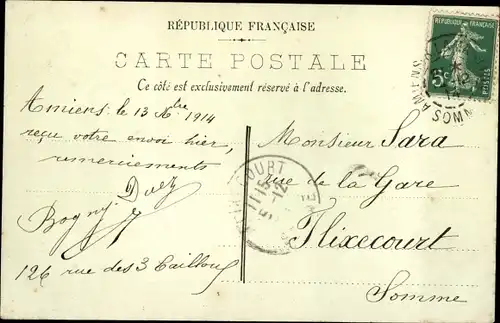 RÉPUBLIQUE FRANÇAISE
CARTE POSTALE
Ce côté est exclusivement réservé à l'adresse.
5c
POSTES
AMIENS
SOMME
Amiens le 13 Xbre 1914
reçu votre envoi hier,
remerciements
Bogny
126 rue des 3 Cailloux
COURT
11-15
5-12
Monsieur Sara
rue de la Gare
Flixecourt
Somme